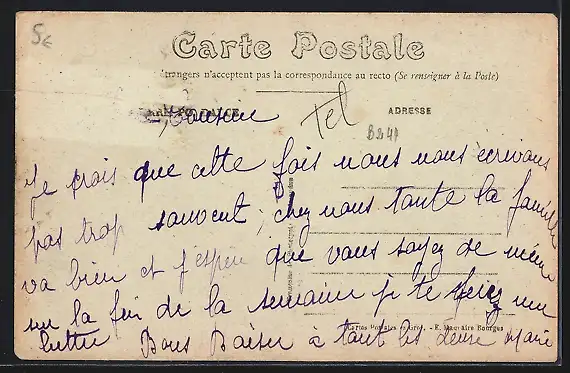 5€
Carte Postale
étrangers n'acceptent pas la correspondance au recto (Se renseigner à la Poste)
ADRESSE
Cousine
Tel
B241
Je crois que cette fois nous nous ecrivons
pas trop souvent, chez nous toute la famille
va bien et j'espere que vous soyez de même
sur la fin de la semaine je te ferez une
lettre Bons Baiser à tout les deux Marie
Cartes Postales en Gros. - E. Maquaire Bourges